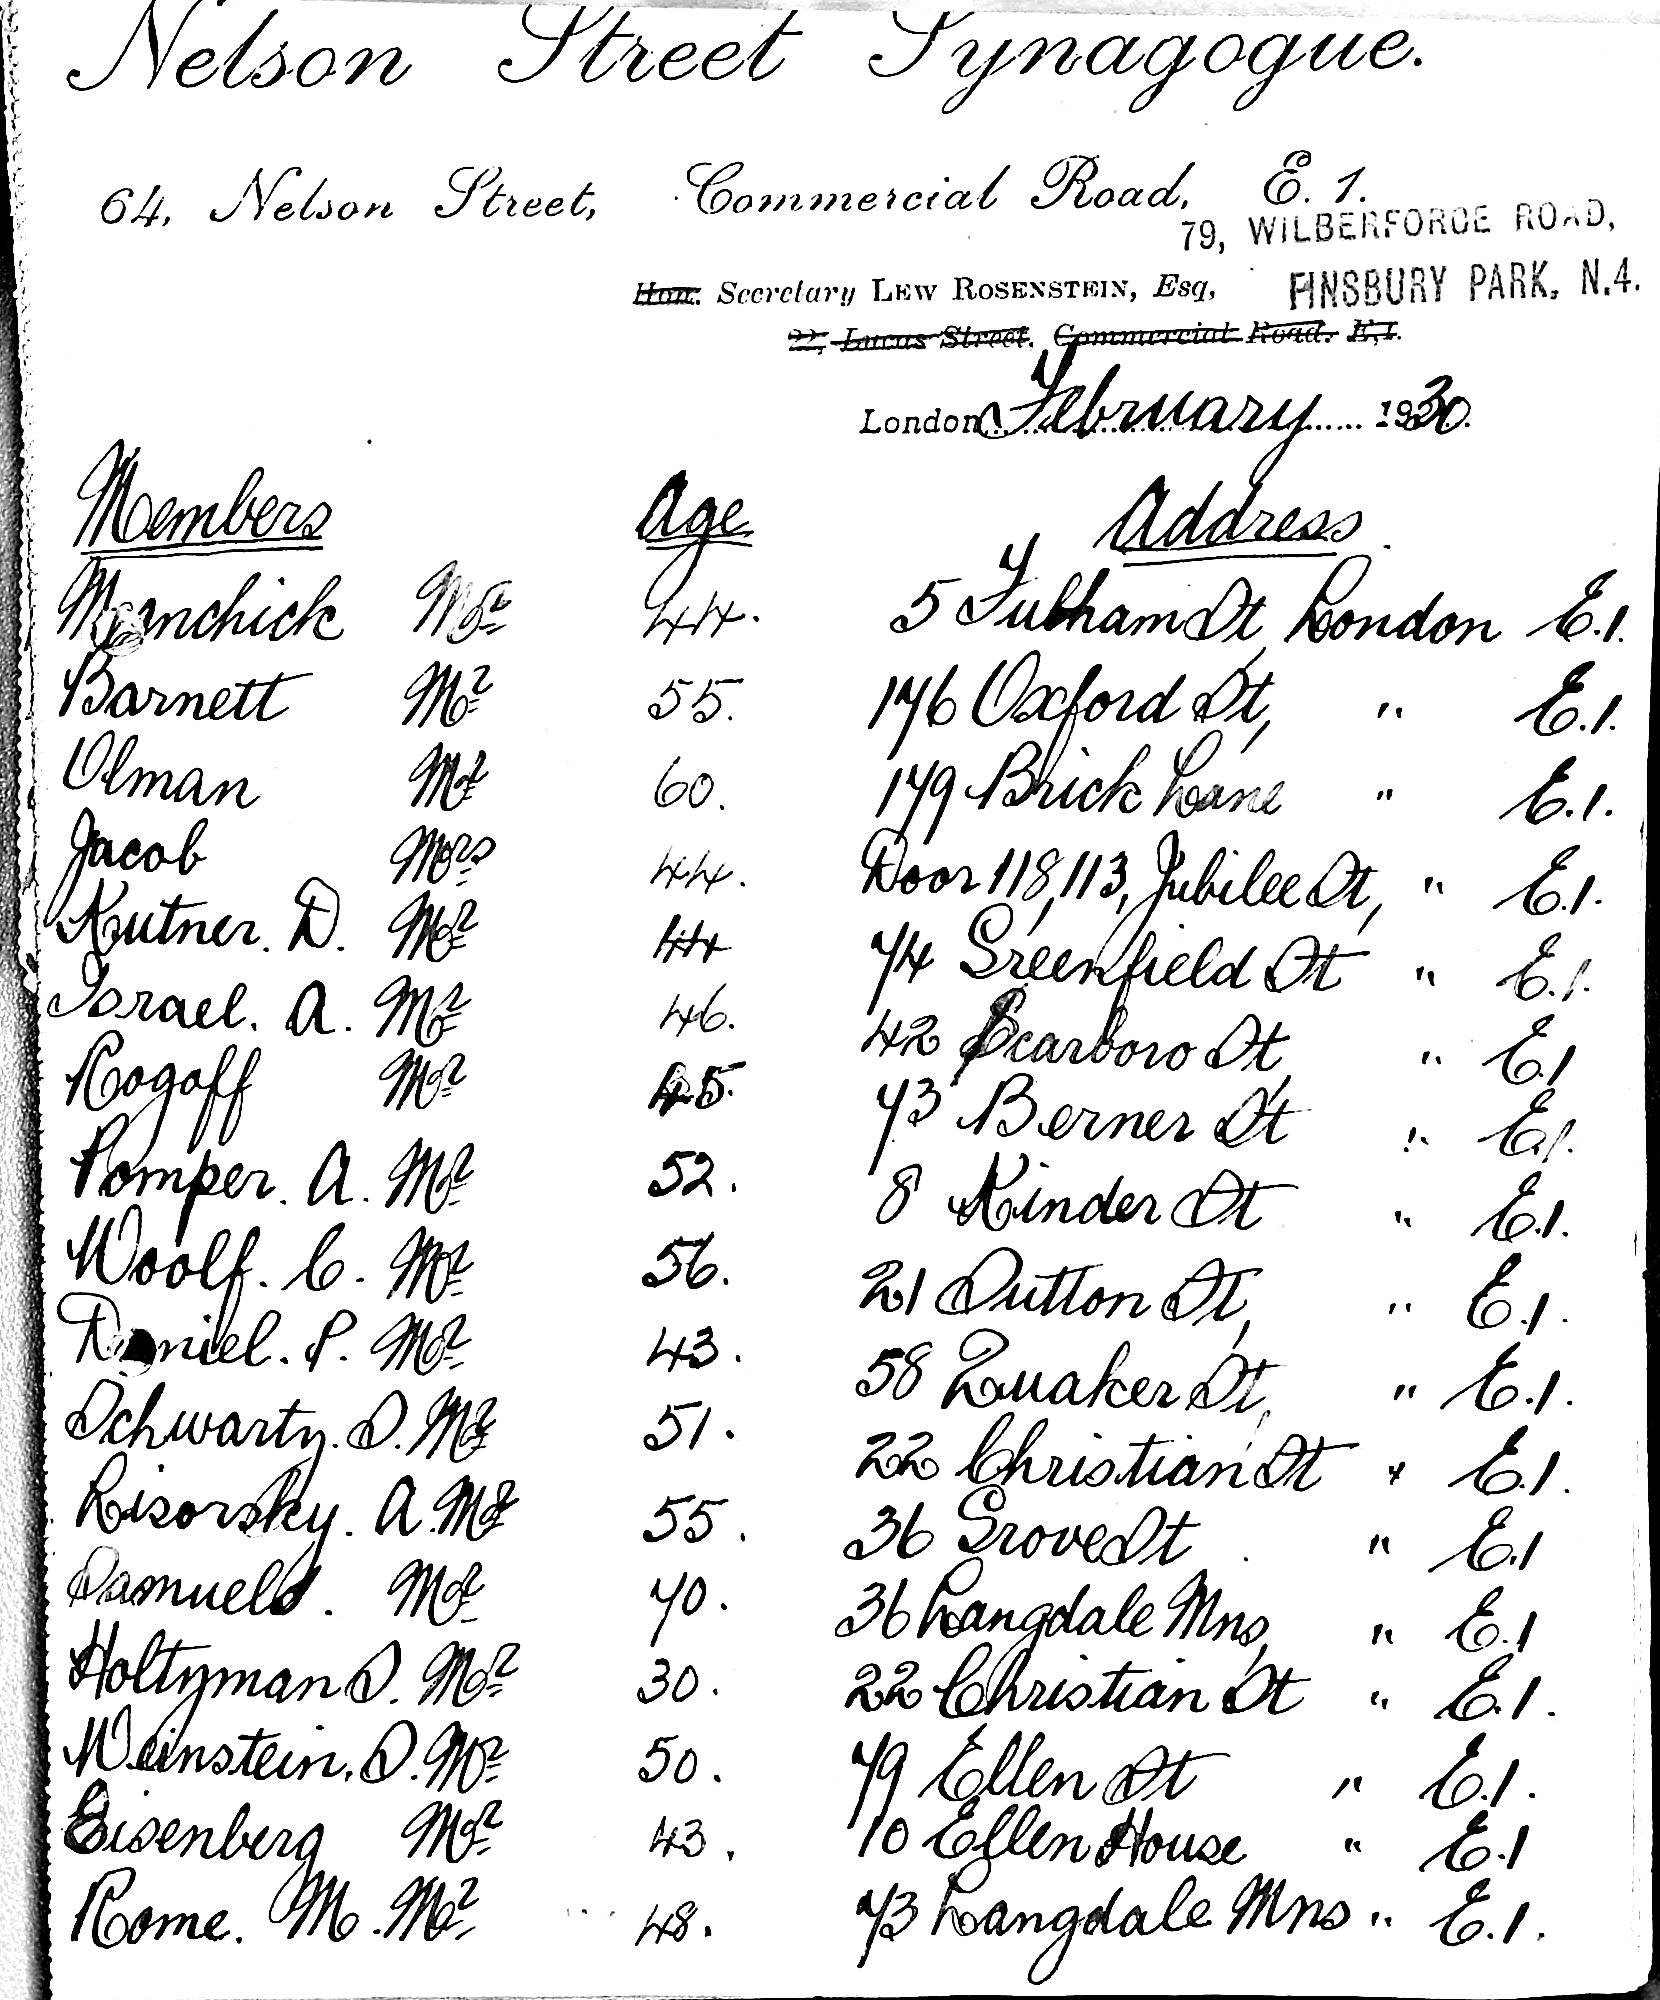 Nelson Street Synagogue.
64, Nelson Street, Commercial Road, E. 1.
79, WILBERFORCE ROAD,
Hon. Secretary LEW ROSENSTEIN, Esq, FINSBURY PARK, N.4.
22, Lucas Street, Commercial Road. E,1.
London February 1930.
Members Age Address
Menchick Mr 44. 5 Fulham St, London E.1.
Barnett Mr 55. 176 Oxford St, " E.1.
Olman Mr 60. 179 Brick Lane " E.1.
Jacob Mrs 44. Door 118, 113, Jubilee St, " E.1.
Kutner. D. Mr 44 74 Greenfield St " E.1.
Israel. A. Mr 46. 42 Scarboro St, " E.1
Rogoff Mr 45. 73 Berner St " E.1.
Pomper. A. Mr 52. 8 Kinder St " E.1.
Woolf. C. Mr 56. 21 Sutton St, " E.1.
Daniel. P. Mr 43. 58 Quaker St, " E.1.
Schwartz. S. Mr 51. 22 Christian St " E.1.
Lisorsky. A. Mr 55. 36 Grove St " E.1
Samuels. Mr 70. 36 Langdale Mns, " E.1
Holtzman S. Mr 30. 22 Christian St " E.1.
Weinstein. S. Mr 50. 79 Ellen St " E.1.
Eisenberg Mr 43. 10 Ellen House " E.1
Rome. M. Mr 48. 73 Langdale Mns " E.1.